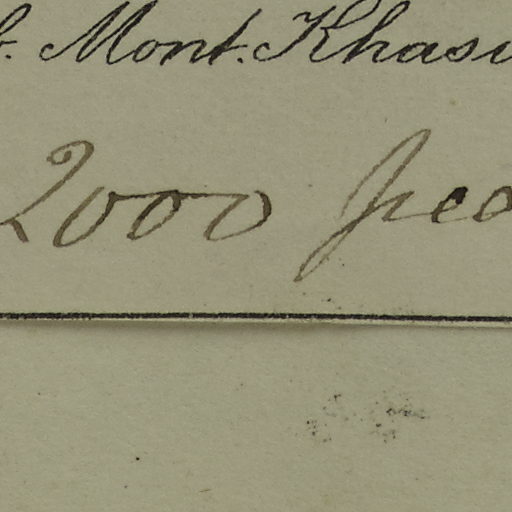 Mont. Khasi
2000 ped